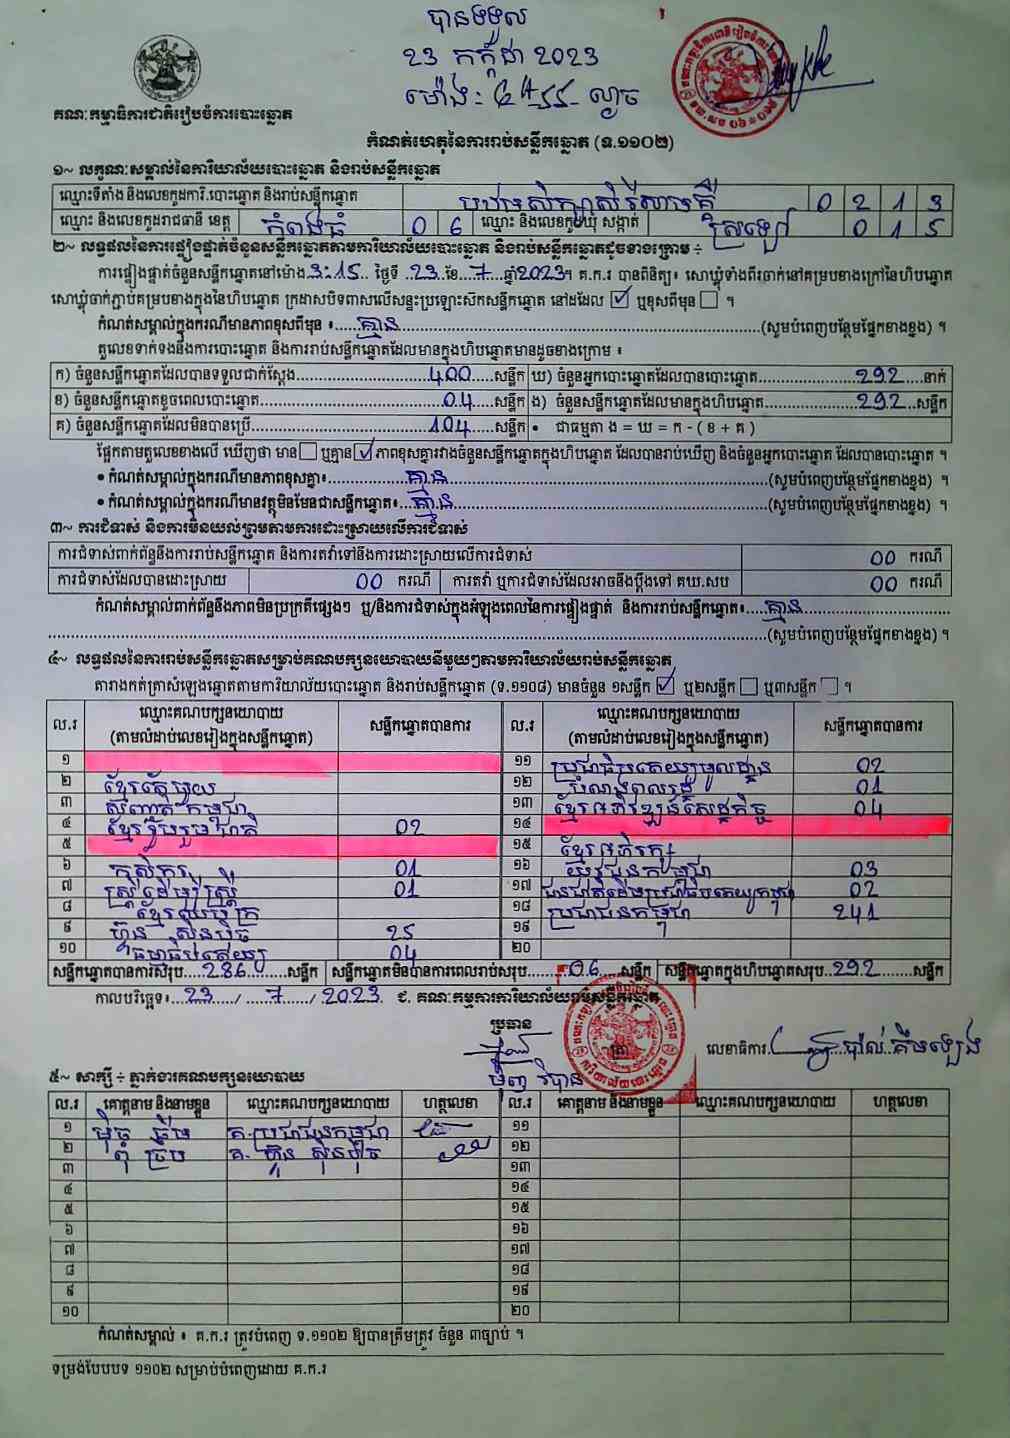 បានទទួល
23 កក្កដា 2023
គណៈកម្មាធិការជាតិរៀបចំការបោះឆ្នោត
កំណត់ហេតុនៃការរាប់សន្លឹកឆ្នោត (ទ.១១០២)
១~ លក្ខណៈសម្គាល់នៃការិយាល័យបោះឆ្នោត និងរាប់សន្លឹកឆ្នោត
ឈ្មោះទីតាំង និងលេខកូដការិ.បោះឆ្នោត និងរាប់សន្លឹកឆ្នោត 0 2 1 3
ឈ្មោះ និងលេខកូដរាជធានី ខេត្ត កំពង់ធំ 0 6 ឈ្មោះ និងលេខកូដឃុំ សង្កាត់ ស្រឡៅ 0 1 5
២~ លទ្ធផលនៃការផ្ទៀងផ្ទាត់ចំនួនសន្លឹកឆ្នោតតាមការិយាល័យបោះឆ្នោត និងរាប់សន្លឹកឆ្នោតដូចខាងក្រោម ÷
ការផ្ទៀងផ្ទាត់ចំនួនសន្លឹកឆ្នោតនៅម៉ោង 3:15 ថ្ងៃទី 23 ខែ 7 ឆ្នាំ 2023។ គ.ក.រ បានពិនិត្យ៖ សោឃ្មុំទាំងពីរចាក់នៅគម្របខាងក្រៅនៃហិបឆ្នោត
សោឃ្មុំចាក់ភ្ជាប់គម្របខាងក្នុងនៃហិបឆ្នោត ក្រដាសបិទពាសលើសន្ទះប្រឡោះសឹកសន្លឹកឆ្នោត នៅដដែល ☑ ឬខុសពីមុន ☐ ។
កំណត់សម្គាល់ក្នុងករណីមានភាពខុសពីមុន ៖ គ្មាន (សូមបំពេញបន្ថែមផ្នែកខាងខ្នង) ។
តួលេខទាក់ទងនឹងការបោះឆ្នោត និងការរាប់សន្លឹកឆ្នោតដែលមានក្នុងហិបឆ្នោតមានដូចខាងក្រោម ៖
ក) ចំនួនសន្លឹកឆ្នោតដែលបានទទួលជាក់ស្តែង 400 សន្លឹក ឃ) ចំនួនអ្នកបោះឆ្នោតដែលបានបោះឆ្នោត 292 នាក់
ខ) ចំនួនសន្លឹកឆ្នោតខូចពេលបោះឆ្នោត 04 សន្លឹក ង) ចំនួនសន្លឹកឆ្នោតដែលមានក្នុងហិបឆ្នោត 292 សន្លឹក
គ) ចំនួនសន្លឹកឆ្នោតដែលមិនបានប្រើ 104 សន្លឹក • ជាធម្មតា ង = ឃ = ក - ( ខ + គ )
ផ្អែកតាមតួលេខខាងលើ ឃើញថា មាន ☐ ឬគ្មាន ☑ ភាពខុសគ្នារវាងចំនួនសន្លឹកឆ្នោតក្នុងហិបឆ្នោត ដែលបានរាប់ឃើញ និងចំនួនអ្នកបោះឆ្នោត ដែលបានបោះឆ្នោត ។
• កំណត់សម្គាល់ក្នុងករណីមានភាពខុសគ្នា៖ គ្មាន (សូមបំពេញបន្ថែមផ្នែកខាងខ្នង) ។
• កំណត់សម្គាល់ក្នុងករណីមានវត្ថុមិនមែនជាសន្លឹកឆ្នោត៖ គ្មាន (សូមបំពេញបន្ថែមផ្នែកខាងខ្នង) ។
៣~ ការជំទាស់ និងការមិនយល់ព្រមតាមការដោះស្រាយលើការជំទាស់
ការជំទាស់ពាក់ព័ន្ធនឹងការរាប់សន្លឹកឆ្នោត និងការតវ៉ាទៅនឹងការដោះស្រាយលើការជំទាស់ 00 ករណី
ការជំទាស់ដែលបានដោះស្រាយ 00 ករណី ការតវ៉ា ឬការជំទាស់ដែលអាចនឹងប្តឹងទៅ គឃ.សប 00 ករណី
កំណត់សម្គាល់ពាក់ព័ន្ធនឹងភាពមិនប្រក្រតីផ្សេងៗ ឬ/និងការជំទាស់ក្នុងអំឡុងពេលនៃការផ្ទៀងផ្ទាត់ និងការរាប់សន្លឹកឆ្នោត៖ គ្មាន
(សូមបំពេញបន្ថែមផ្នែកខាងខ្នង) ។
៤~ លទ្ធផលនៃការរាប់សន្លឹកឆ្នោតសម្រាប់គណបក្សនយោបាយនីមួយៗតាមការិយាល័យរាប់សន្លឹកឆ្នោត
តារាងកត់ត្រាសំឡេងឆ្នោតតាមការិយាល័យបោះឆ្នោត និងរាប់សន្លឹកឆ្នោត (ទ.១១០៨) មានចំនួន ១សន្លឹក ☑ ឬ២សន្លឹក ☐ ឬ៣សន្លឹក ☐ ។
ល.រ ឈ្មោះគណបក្សនយោបាយ (តាមលំដាប់លេខរៀងក្នុងសន្លឹកឆ្នោត) សន្លឹកឆ្នោតបានការ ល.រ ឈ្មោះគណបក្សនយោបាយ (តាមលំដាប់លេខរៀងក្នុងសន្លឹកឆ្នោត) សន្លឹកឆ្នោតបានការ
១ ១១ ប្រជាធិបតេយ្យមូលដ្ឋាន 02
២ ខ្មែរតែមួយ ១២ បំណងពលរដ្ឋ 01
៣ សញ្ជាតិកម្ពុជា ១៣ ខ្មែរអភិវឌ្ឍន៍សេដ្ឋកិច្ច 04
៤ ខ្មែររួបរួមជាតិ 02 ១៤
៥ ១៥ ខ្មែរអភិរក្ស
៦ កសិករ 01 ១៦ យុវជនកម្ពុជា 03
៧ ស្ត្រីដើម្បីស្ត្រី 01 ១៧ ជនជាតិដើមប្រជាធិបតេយ្យកម្ពុជា 02
៨ ខ្មែរឈប់ក្រ ១៨ ប្រជាជនកម្ពុជា 241
៩ ហ្វ៊ុនស៊ិនប៉ិច 25 ១៩
១០ ធម្មាធិបតេយ្យ 04 ២០
សន្លឹកឆ្នោតបានការសរុប 286 សន្លឹក សន្លឹកឆ្នោតមិនបានការពេលរាប់សរុប 06 សន្លឹក សន្លឹកឆ្នោតក្នុងហិបឆ្នោតសរុប 292 សន្លឹក
កាលបរិច្ឆេទ៖ 23 / 7 / 2023 ជ. គណៈកម្មការការិយាល័យរាប់សន្លឹកឆ្នោត
ប្រធាន លេខាធិការ
៥~ សាក្សី ÷ ភ្នាក់ងារគណបក្សនយោបាយ
ល.រ គោត្តនាម និងនាមខ្លួន ឈ្មោះគណបក្សនយោបាយ ហត្ថលេខា ល.រ គោត្តនាម និងនាមខ្លួន ឈ្មោះគណបក្សនយោបាយ ហត្ថលេខា
១ គ.ប្រជាជនកម្ពុជា ១១
២ គ. ហ្វ៊ុនស៊ិនប៉ិច ១២
៣ ១៣
៤ ១៤
៥ ១៥
៦ ១៦
៧ ១៧
៨ ១៨
៩ ១៩
១០ ២០
កំណត់សម្គាល់ ៖ គ.ក.រ ត្រូវបំពេញ ទ.១១០២ ឱ្យបានត្រឹមត្រូវ ចំនួន ៣ច្បាប់ ។
ទម្រង់បែបបទ ១១០២ សម្រាប់បំពេញដោយ គ.ក.រ